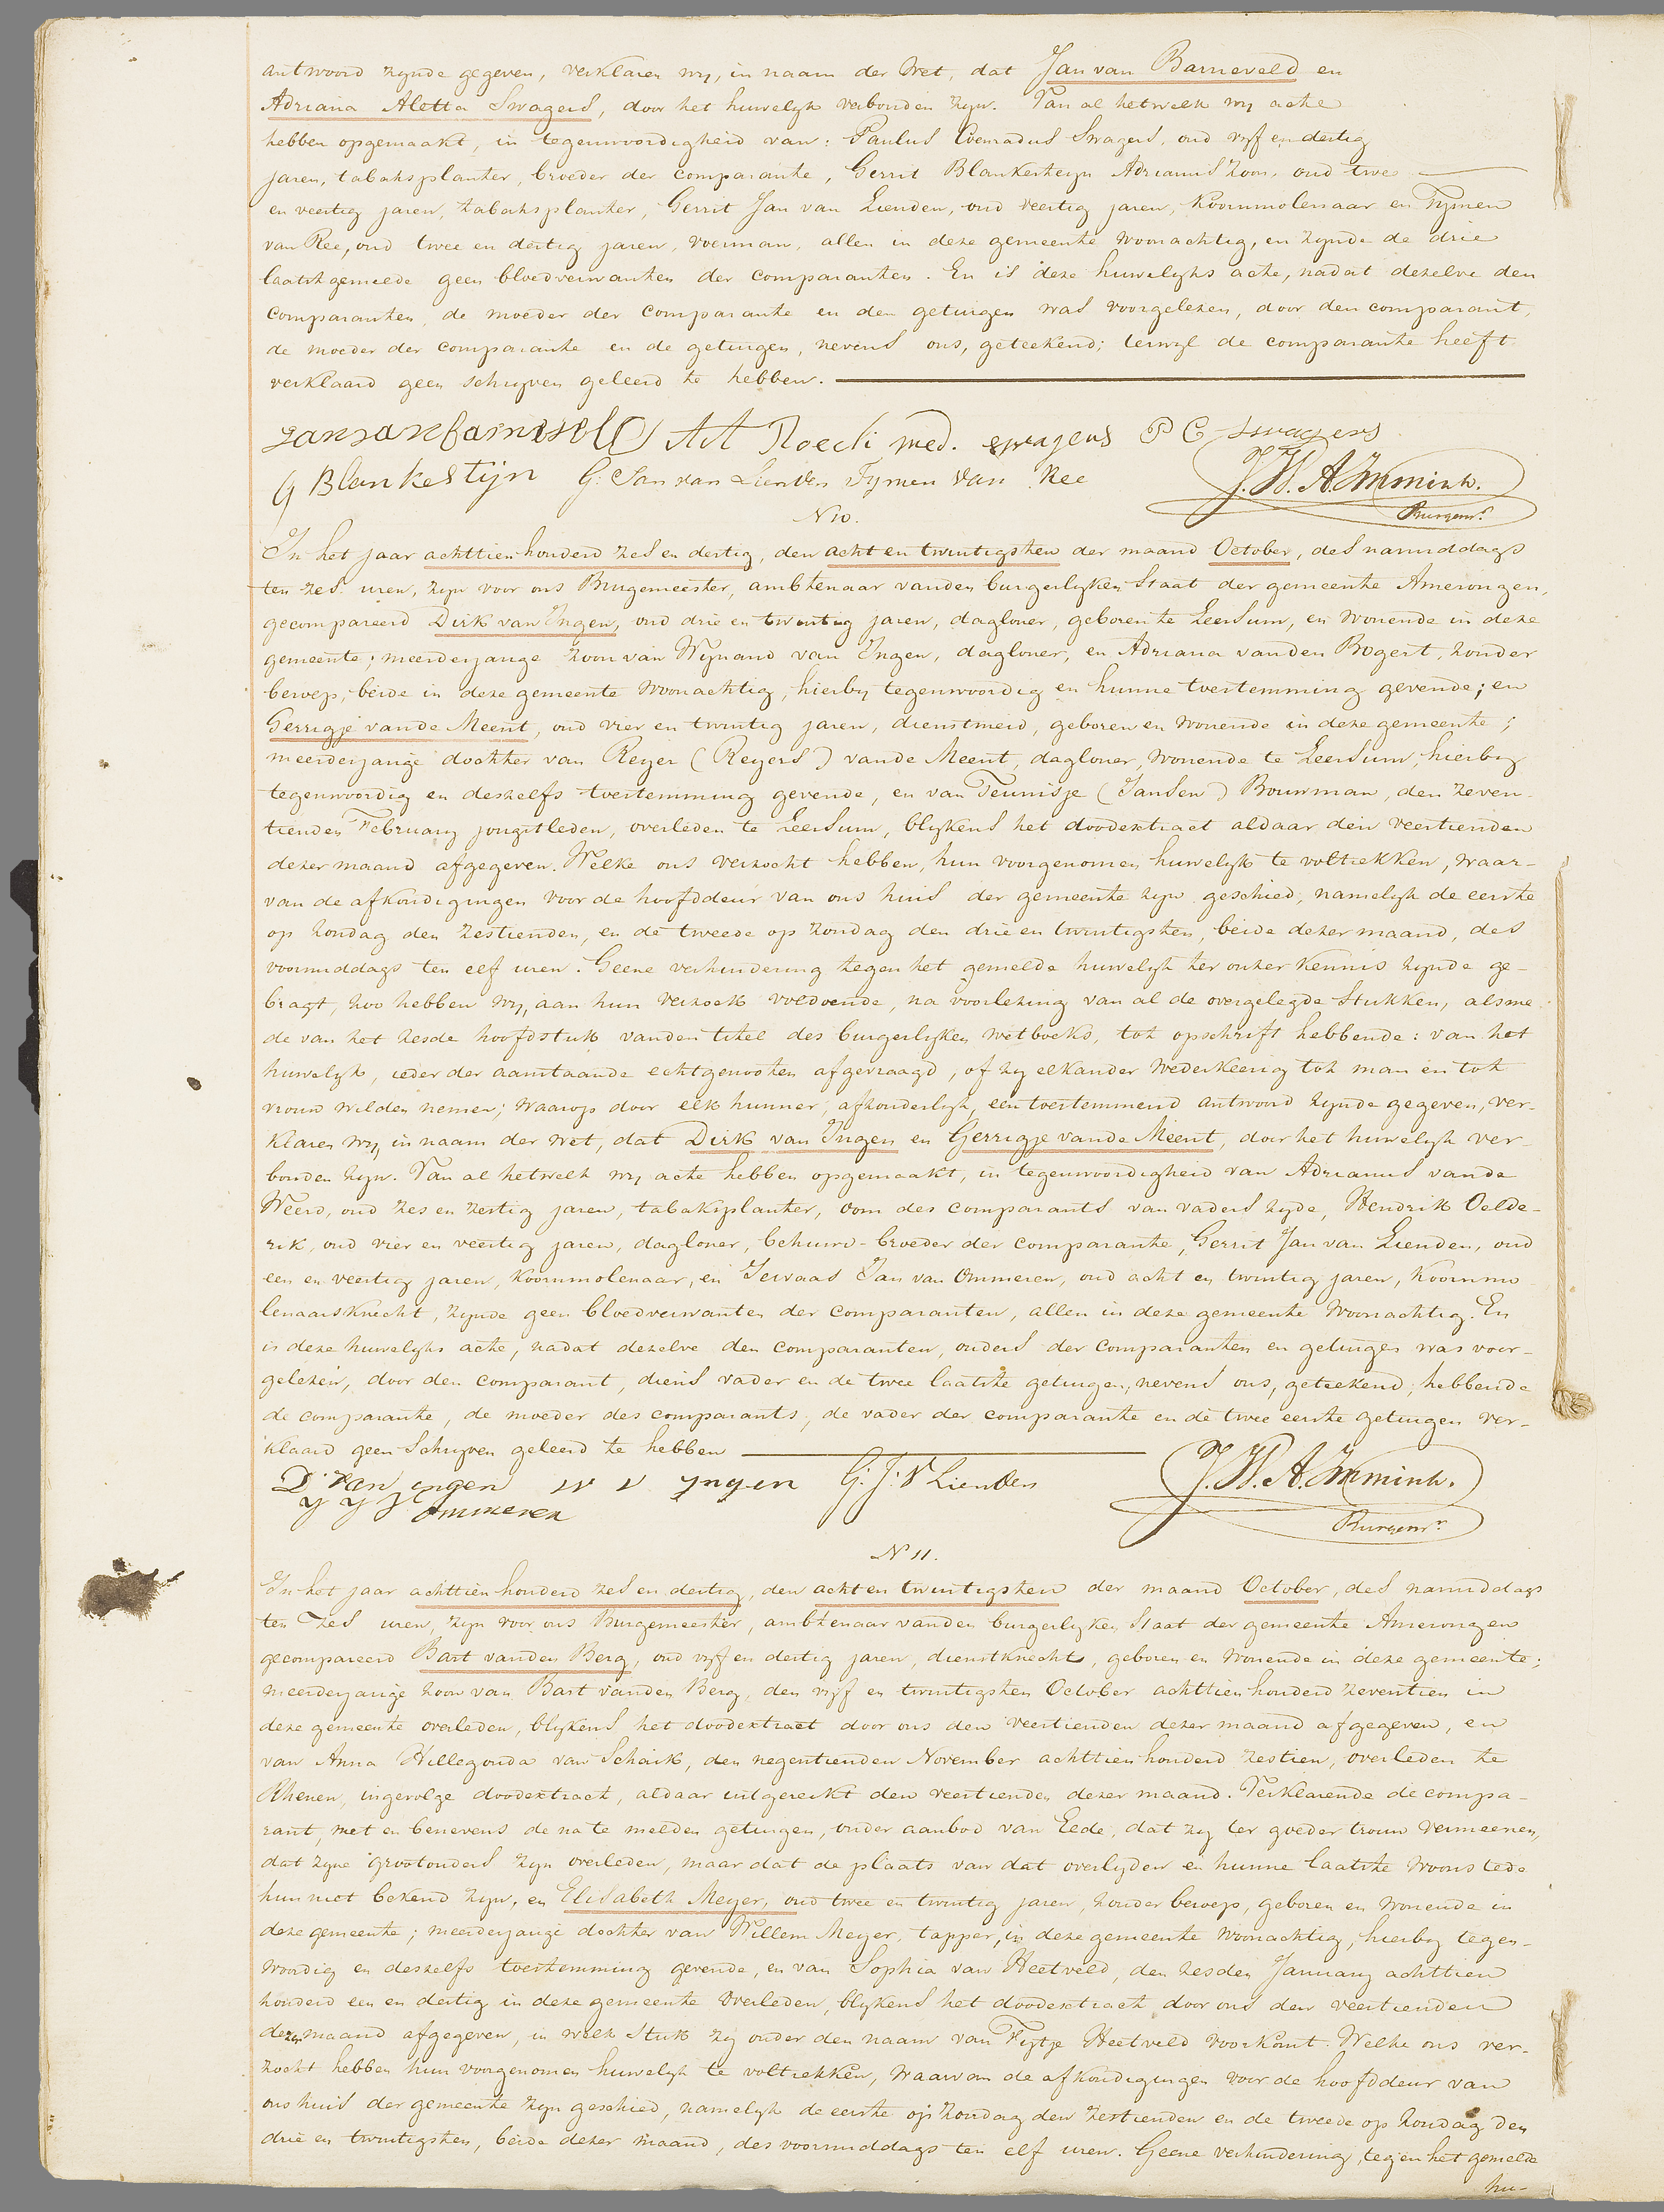 antwoord zynde gegeven, verklaren wy, in naam der Wet, dat Jan van Barneveld en
Adriana Aletta Swagers, door het huwelyk verbonden zyn. Van al hetwelk wy acte
hebben opgemaakt, in tegenwoordigheid van: Paulus Coenradus Swagers, oud vyf en dertig
jaren, tabaksplanter, broeder der comparante, Gerrit Blankesteyn Adrianus Zoon, oud twee
en veertig jaren, tabaksplanter, Gerrit Jan van Lienden, oud veertig jaren, Koornmolenaar en Tymen
van Ree, oud twee en dertig jaren, voerman, allen in deze gemeente woonachtig, en zynde de drie
laatstgemelde geen bloedverwanten der comparanten. En is deze huwelyks acte, nadat dezelve den
comparanten, de moeder der comparante en den getuigen was voorgelezen, door den comparant,
de moeder der comparante en de getuigen, nevens ons, geteekend; terwyl de comparante heeft
verklaard geen schryven geleerd te hebben.
Jan van barneveld A A Roeck wed. swagers P C Swagers
G Blankestijn G: Jan van Lienden Tymen van Ree J. W. A. Immink.
Burgemr.
N 10.
In het jaar achttien honderd zes en dertig, den acht en twintigsten der maand October, des namiddags
ten zes uren, zyn voor ons Burgemeester, ambtenaar vanden burgerlyken Staat der gemeente Amerongen,
gecompareerd Dirk van Ingen, oud drie en twintig jaren, daglooner, geboren te Leersum, en wonende in deze
gemeente; meerderjarige zoon van Wynand van Ingen, dagloner, en Adriana vanden Bogert, zonder
beroep, beide in deze gemeente woonachtig, hierby tegenwoordig en hunne toestemming gevende; en
Gerrigje vande Meent, oud vier en twintig jaren, dienstmeid, geboren en wonende in deze gemeente;
meerderjarige dochter van Reyer (Reyers) vande Meent, dagloner, wonende te Leersum, hierby
tegenwoordig en deszelfs toestemming gevende, en van Teunisje (Jansen) Bouwman, den zeven-
tienden February jongstleden, overleden te Leersum, blykens het doodextract aldaar den veertienden
dezer maand afgegeven. Welke ons verzocht hebben, hun voorgenomen huwelyk te voltrekken, waar-
van de afkondigingen voor de hoofddeur van ons huis der gemeente zyn geschied, namelyk de eerste
op zondag den zestienden, en de tweede op zondag den drie en twintigsten, beide dezer maand, des
voormiddags ten elf uren. Geene verhindering tegen het gemelde huwelyk ter onzer kennis zynde ge-
bragt, zoo hebben wy, aan hun verzoek voldoende, na voorlezing van al de overgelegde Stukken, alsme
de van het zesde hoofdstuk vanden titel des burgerlyken wetboeks, tot opschrift hebbende: van het
huwelyk, ieder der aanstaande echtgenooten afgevraagd, of zy elkander wederkeerig tot man en tot
vrouw wilden nemen; waarop door elk hunner, afzonderlyk, een toestemmend antwoord zynde gegeven, ver-
klaren wy, in naam der wet, dat Dirk van Ingen en Gerrigje vande Meent, door het huwelyk ver-
bonden zyn. Van al hetwelk wy acte hebben opgemaakt, in tegenwoordigheid van Adrianus vande
Weerd, oud zes en zestig jaren, tabaksplanter, oom des comparants van vaders zyde, Hendrik Oelde-
rik, oud vier en veertig jaren, dagloner, behuwd-broeder der comparante, Gerrit Jan van Lienden, oud
een en veertig jaren, Koornmolenaar, en Servaas Jan van Ommeren, oud acht en twintig jaren, Koornmo
lenaarsknecht, zynde geen bloedverwanten der comparanten, allen in deze gemeente woonachtig. En
is deze huwelyks acte, nadat dezelve den comparanten, ouders der comparanten en getuigen was voor-
gelezen, door den comparant, diens vader en de twee laatste getuigen, nevens ons, geteekend; hebbende
de comparante, de moeder des comparants, de vader der comparante en de twee eerste getuigen ver-
klaard geen Schryven geleerd te hebben
D: van ingen W V yngen G: J: V Lienden J. W. A. Immink.
Ommeren Burgemr.
N 11.
In het jaar achttien honderd zes en dertig, den acht en twintigsten der maand October, des namiddags
ten zes uren, zyn voor ons Burgemeester, ambtenaar vanden burgerlyken Staat der gemeente Amerongen
gecompareerd Bart vanden Berg, oud vyf en dertig jaren, dienstknecht, geboren en wonende in deze gemeente;
meerderjarige zoon van Bart vanden Berg, den vyf en twintigsten October achttien honderd zeventien in
deze gemeente overleden, blykens het doodextract door ons den veertienden dezer maand afgegeven, en
van Anna Hillegonda van Schaik, den negentienden November achttien honderd zestien, overleden te
Rhenen, ingevolge doodextract, aldaar uitgereikt den veertienden dezer maand. Verklarende de compa-
rant, met en benevens de na te melden getuigen, onder aanbod van Eede, dat zy ter goeder trouw vermeenen,
dat zyne grootouders zyn overleden, maar dat de plaats van dat overlyden en hunne laatste woonstede
hun niet bekend zyn, en Elisabeth Meyer, oud twee en twintig jaren, zonder beroep, geboren en wonende in
deze gemeente; meerderjarige dochter van Willem Meyer, tapper, in deze gemeente woonachtig, hierby tegen-
woordig en deszelfs toestemming gevende, en van Sophia van Heetveld, den zesden January achttien
honderd een en dertig in deze gemeente overleden, blykens het doodextract door ons den veertienden
dezer maand afgegeven, in welk Stuk zy onder den naam van Fytje Heetveld voorkomt. Welke ons ver-
zocht hebben hun voorgenomen huwelyk te voltrekken, waarvan de afkondigingen voor de hoofddeur van
ons huis der gemeente zyn geschied, namelyk de eerste op zondag den zestienden en de tweede op zondag den
drie en twintigsten, beide dezer maand, des voormiddags ten elf uren. Geene verhindering, tegen het gemelde
hu-